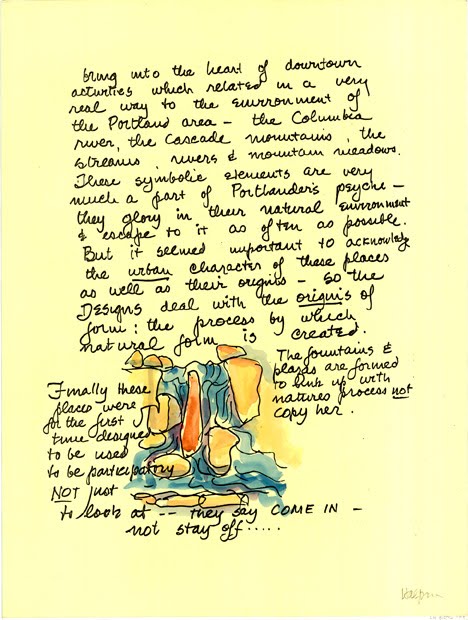 bring into the heart of downtown
activities which related in a very
real way to the environment of
the Portland area – the Columbia
river, the Cascade mountains, the
streams, rivers & mountain meadows.
These symbolic elements are very
much a part of Portlander's psyche –
they glory in their natural environment
& escape to it as often as possible.
But it seemed important to acknowledge
the urban character of these places
as well as their origins – so the
Designs deal with the origins of
form: the process by which
natural form is created.
The fountains &
plazas are formed
to link up with
natures process not
copy her.
Finally these
places were
for the first
time designed
to be used
to be participatory
NOT just
to look at -- they say COME IN –
not stay off.....